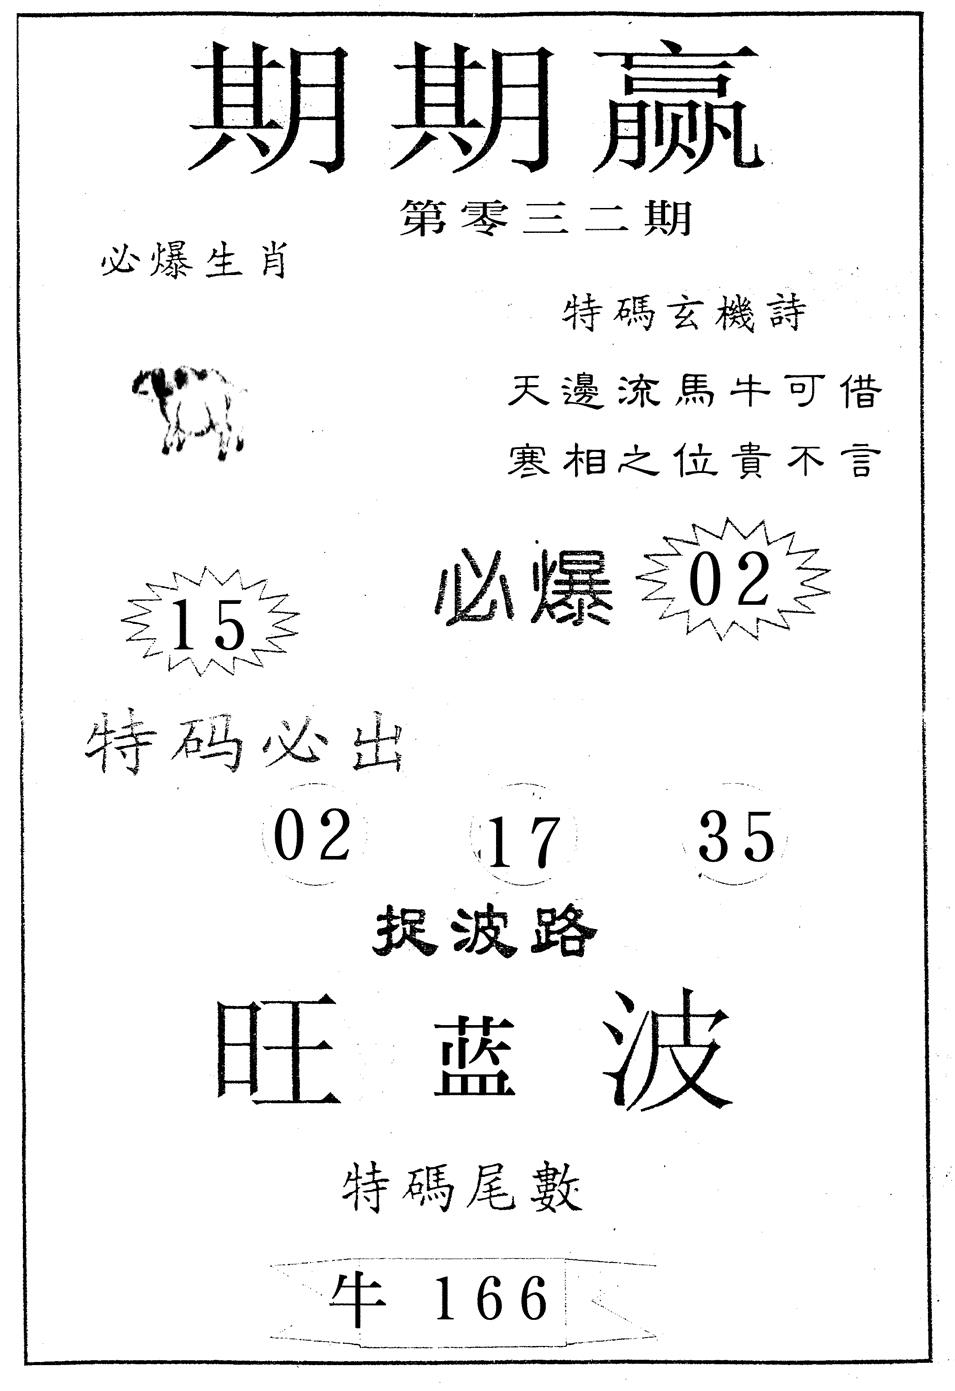 期期赢
第零三二期
必爆生肖
特碼玄機詩
天邊流馬牛可借
寒相之位貴不言
必爆 02
15
特码必出
02 17 35
捉波路
旺蓝波
特碼尾數
牛 166